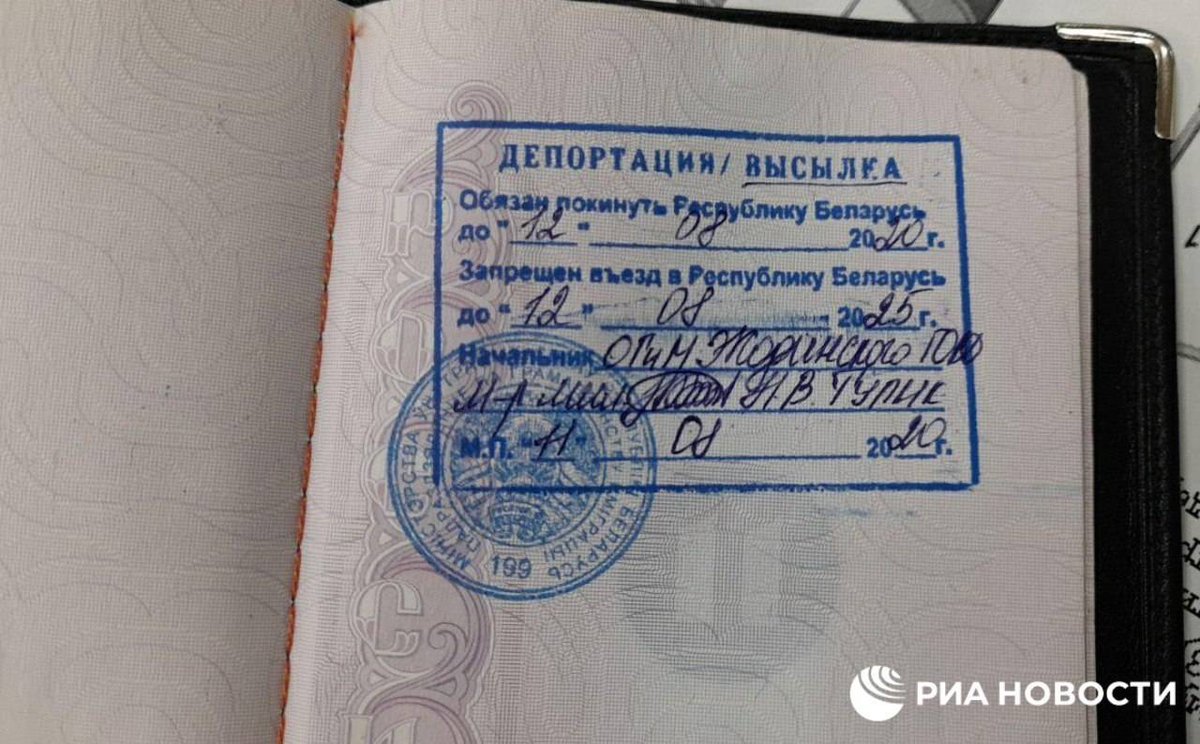 ДЕПОРТАЦИЯ/ ВЫСЫЛКА
Обязан покинуть Республику Беларусь
до "12" 08 2020 г.
Запрещен въезд в Республику Беларусь
до "12" 08 2025 г.
Начальник ОГиМ Жодинского ГОВД
м-р милиции Н.В. Гулик
М.П. "11" 08 2020 г.
РЭСПУБЛІКІ БЕЛАРУСЬ
МІНІСТЭРСТВА ЎНУТРАНЫХ СПРАЎ
199
РИА НОВОСТИ